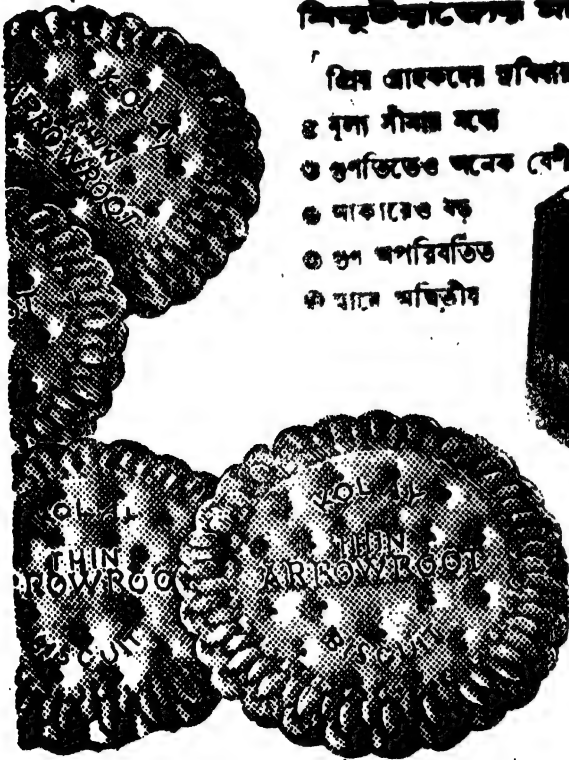 প্রিয় গ্রাহকদের সুবিধার
মূল্য সীমার মধ্যে
গুণতিতেও অনেক বেশী
আকারেও বড়
গুণ অপরিবর্তিত
স্বাদে অদ্বিতীয়
KOLAY
THIN
ARROWROOT
OLAY
THIN
RROWROO
BISCUIT
KOLAY
THIN
ARROWROOT
BISCUIT